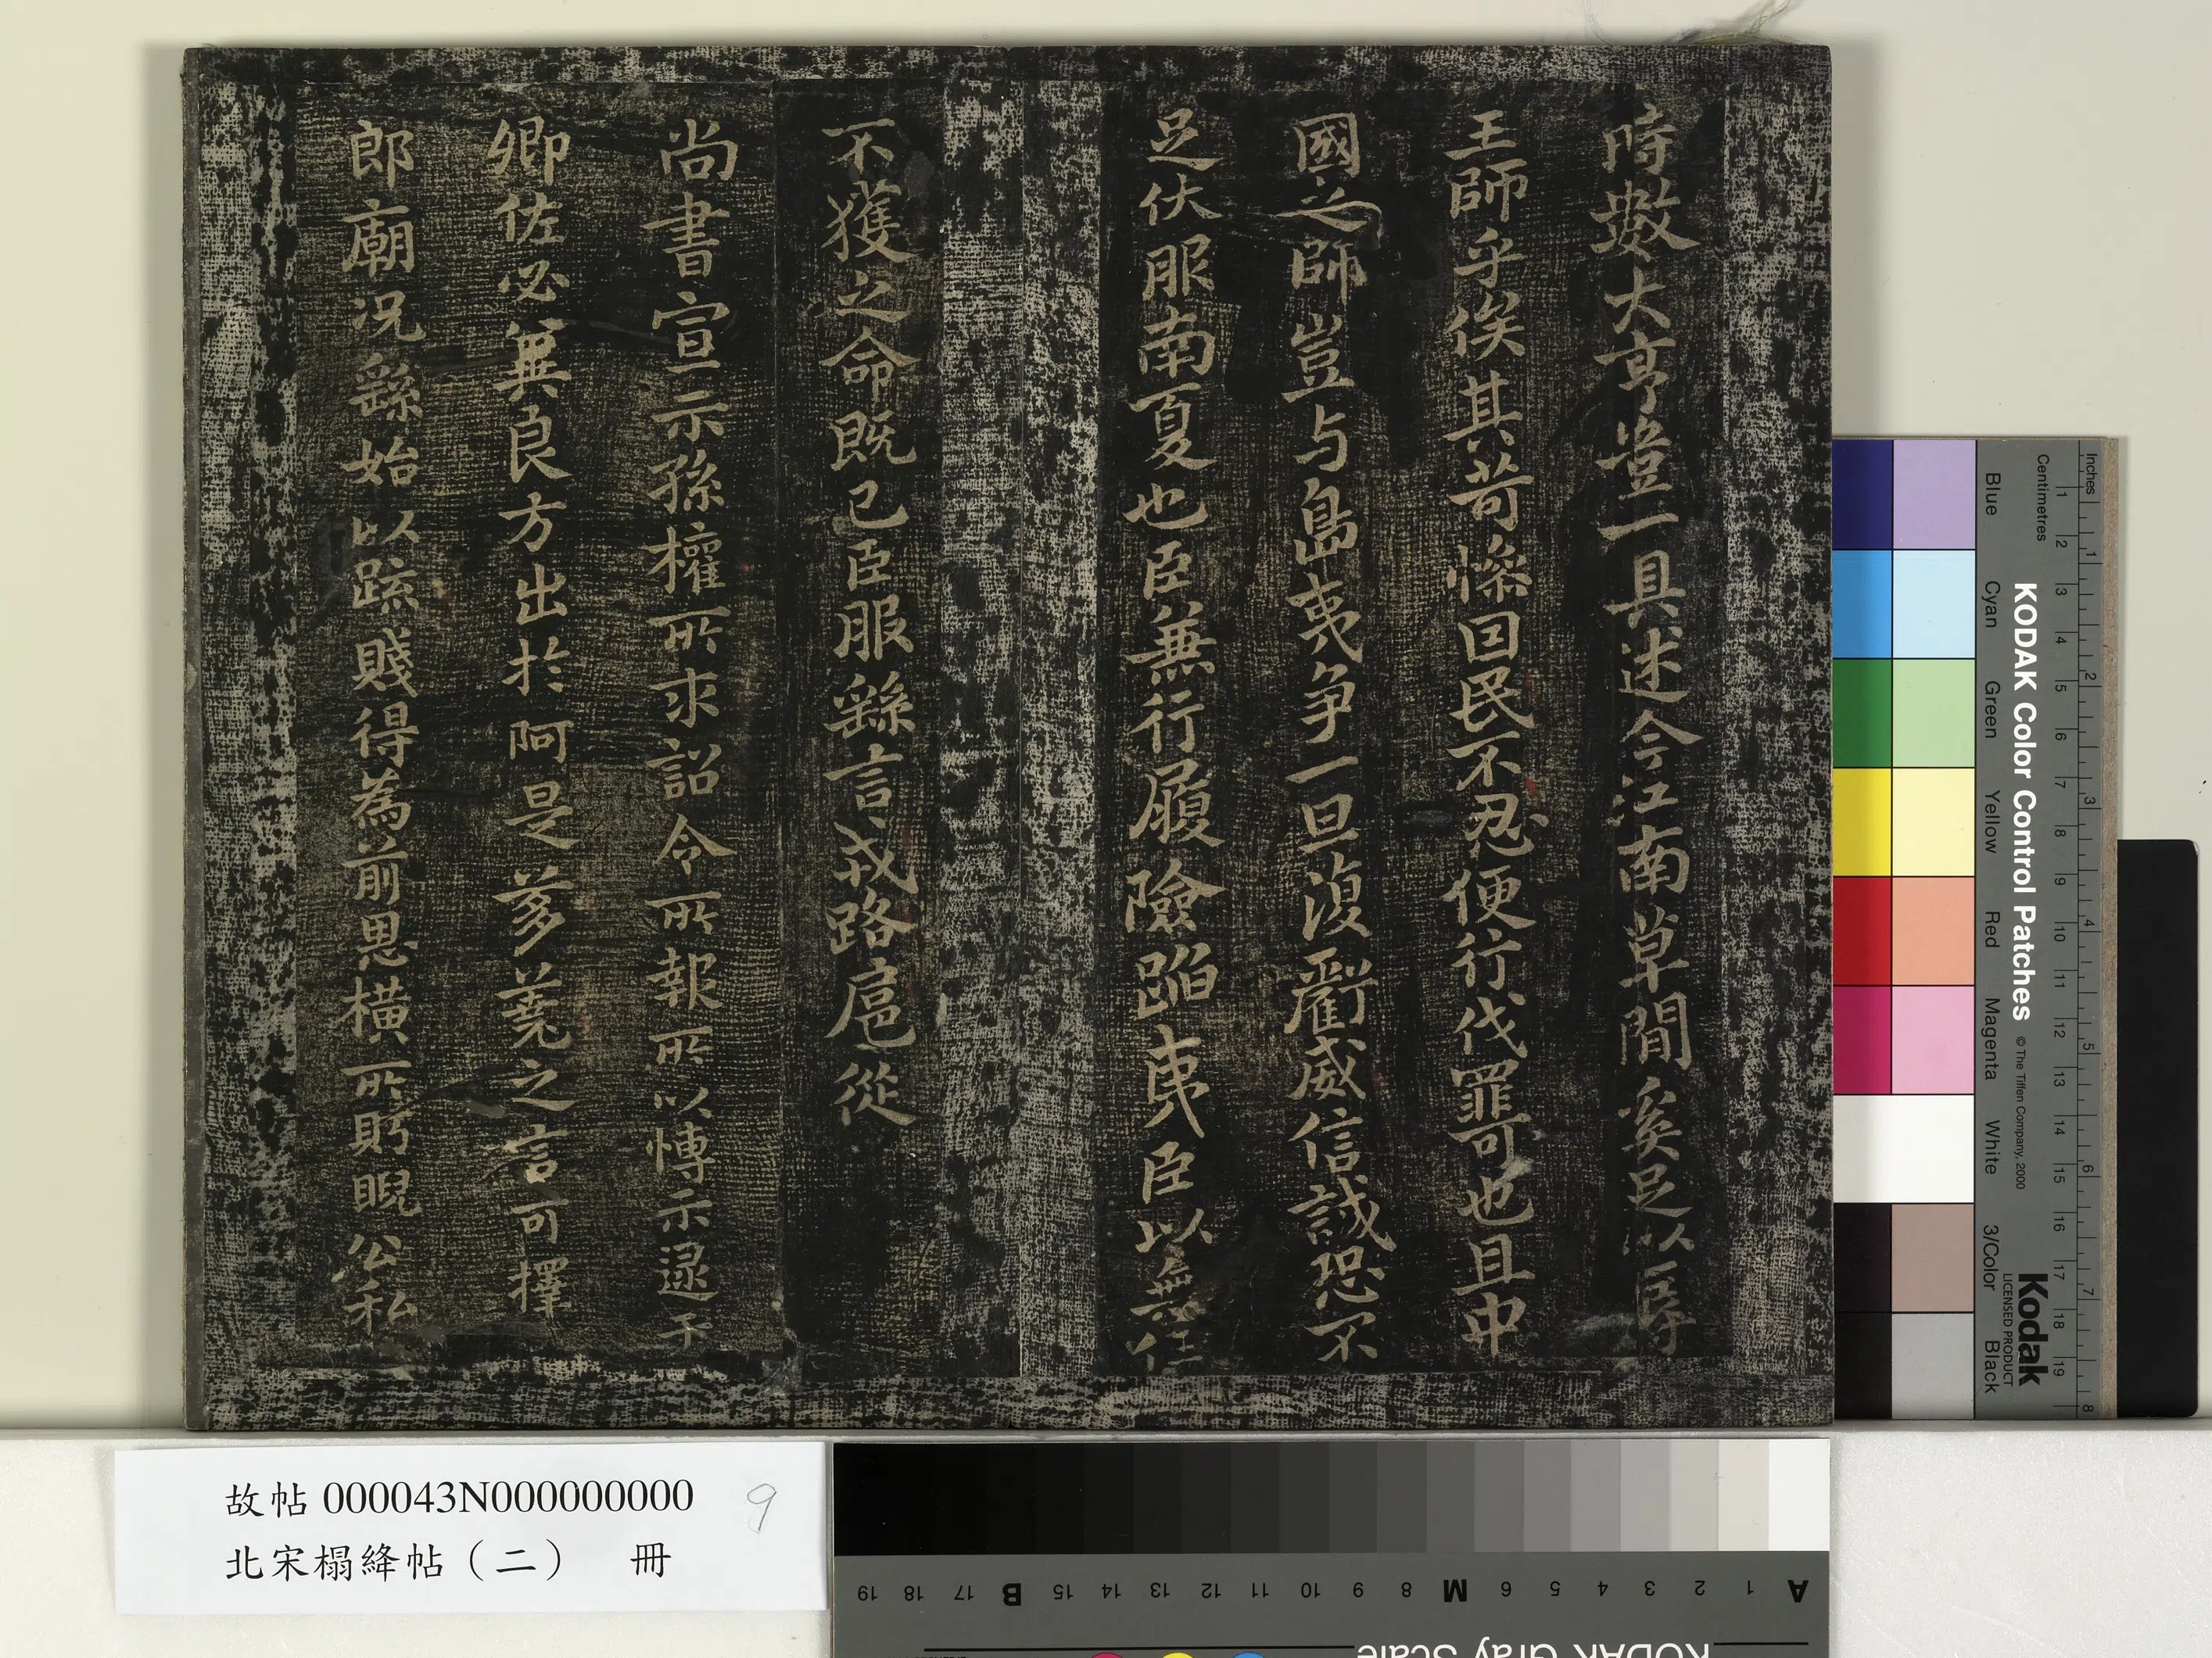 時數大亨豈一具述今江南草間奚足以辱
王師乎俟其苛慘因民不忍便行伐罪可也且中
國之師豈与島夷爭一旦復虧威信誠恐不
足伏服南夏也臣無行履險蹈夷臣以無任
不獲之命既已臣服繇言戎路扈從
尚書宣示孫權所求詔令所報所以博示逮于
卿佐必冀良方出於阿是芻蕘之言可擇
郎廟况繇始以疏賤得為前恩橫所眄睨公私
故帖 000043N000000000 9
北宋榻絳帖（二） 冊
Inches 1 2 3 4 5 6 7 8
Centimetres 1 2 3 4 5 6 7 8 9 10 11 12 13 14 15 16 17 18 19
KODAK Color Control Patches © The Tiffen Company, 2000
Kodak
LICENSED PRODUCT
Blue Cyan Green Yellow Red Magenta White 3/Color Black
A 1 2 3 4 5 6 M 8 9 10 11 12 13 14 15 B 17 18 19
KODAK Gray Scale